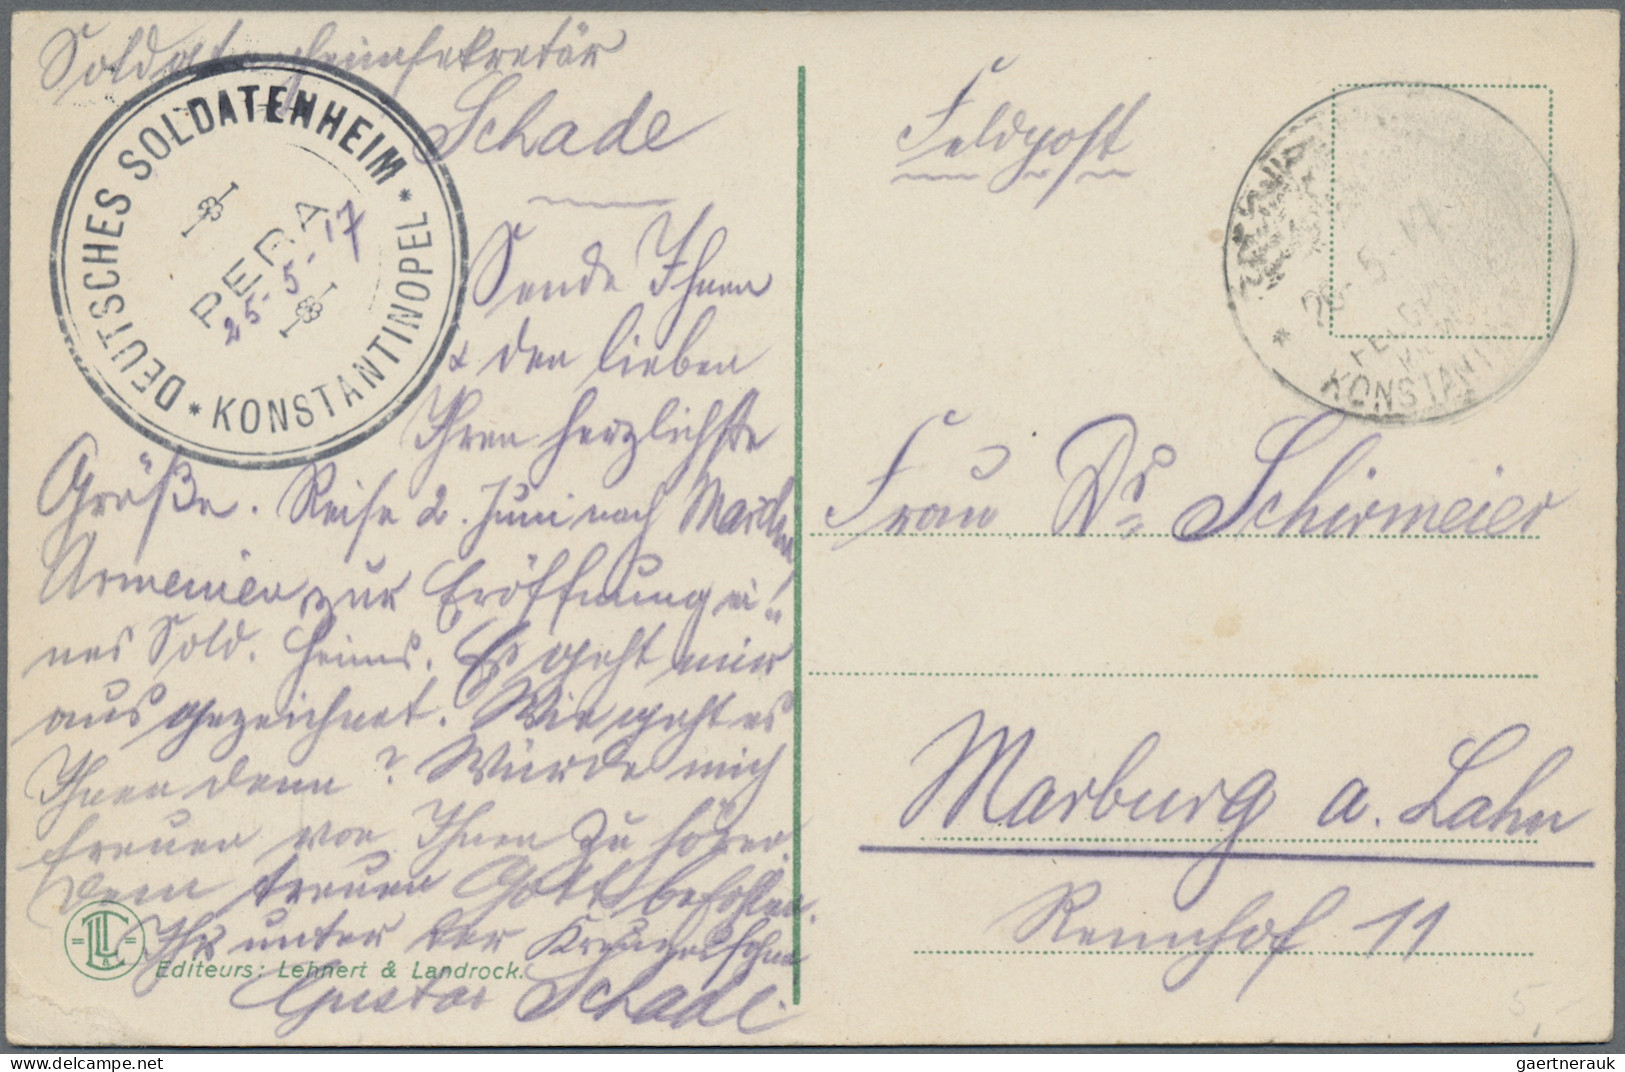 Soldatenheimsekretär
Schade
DEUTSCHES SOLDATENHEIM
* KONSTANTINOPEL *
PERA
25-5-17
Sende Ihnen
& den lieben
Ihren herzlichste
Grüße. Reise 2. Juni nach Mardin
Armenien zur Eröffnung ei
nes Sold. Heims. Es geht mir
ausgezeichnet. Wie geht es
Ihnen denn? Würde mich
freuen von Ihnen zu hören.
Dem treuen Gott befohlen.
Ihr unter der Kreuzesfahne
Gustav Schade.
Editeurs: Lehnert & Landrock.
Feldpost
* 26.5.17
KONSTANTI
Frau Dr Schirmeier
Marburg a. Lahn
Rennhof 11
5,-
gaertnerauk